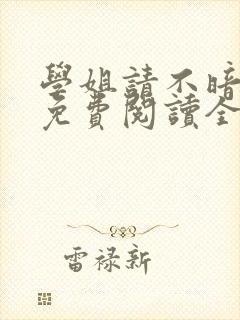 學姐請不暗
免費閱讀全
雷禄新